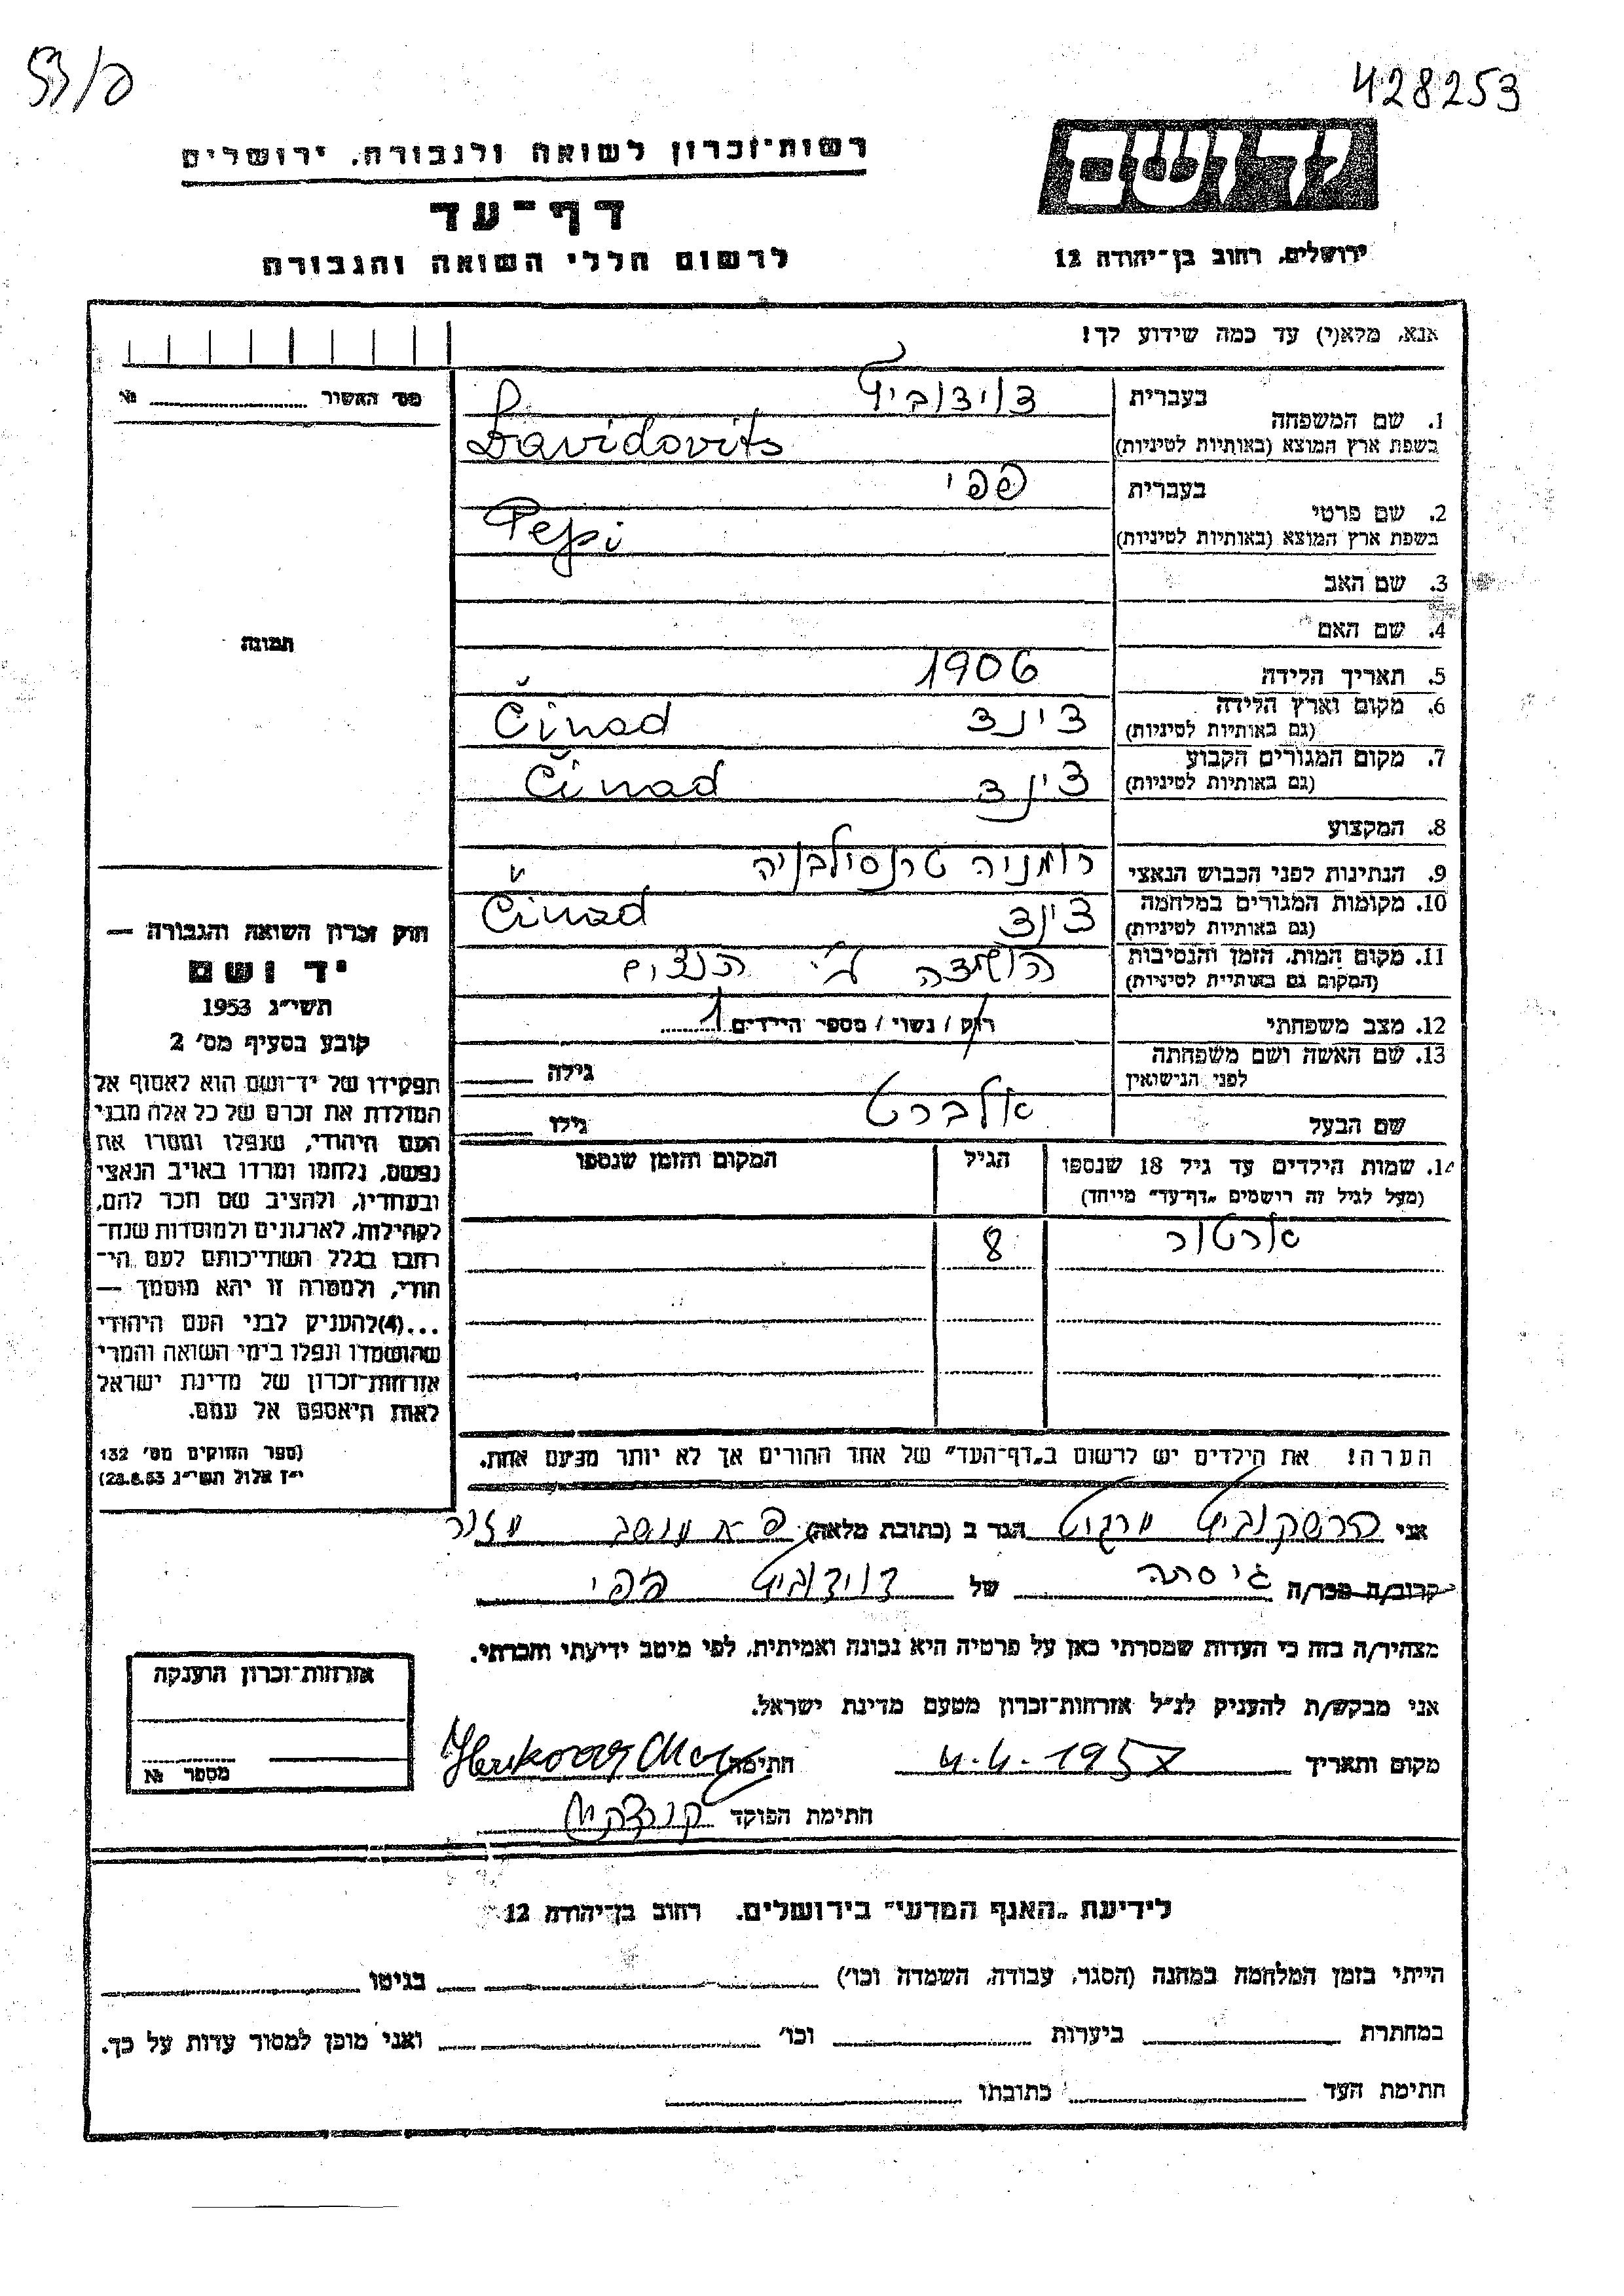 428253
יד ושם
ירושלים, רחוב בן־יהודה 12
רשות־זכרון לשואה ולגבורה, ירושלים
דף־עד
לרשום חללי השואה והגבורה
אנא, מלא(י) עד כמה שידוע לך!
מס׳ האשור № 
בעברית דוידוביץ
1. שם המשפחה
בשפת ארץ המוצא (באותיות לטיניות) Davidovits
בעברית פפי
2. שם פרטי
בשפת ארץ המוצא (באותיות לטיניות) Pepi
3. שם האב
4. שם האם
5. תאריך הלידה 1906
6. מקום וארץ הלידה צ׳ינד Činad
(גם באותיות לטיניות)
7. מקום המגורים הקבוע צ׳ינד Činad
(גם באותיות לטיניות)
8. המקצוע
9. הנתינות לפני הכבוש הנאצי רומניה טרנסילבניה
10. מקומות המגורים במלחמה צ׳ינד Činad
(גם באותיות לטיניות)
11. מקום המות, הזמן והנסיבות הושמדה ע״י הנצים
(המקום גם באותיות לטיניות)
12. מצב משפחתי רוק / נשוי / מספר הילדים 1
13. שם האשה ושם משפחתה
לפני הנישואין גילה
שם הבעל אלברט גילו
14. שמות הילדים עד גיל 18 שנספו הגיל המקום והזמן שנספו
(מעל לגיל זה רושמים „דף־עד״ מיוחד)
ארטור 8
הערה! את הילדים יש לרשום ב„דף־העד״ של אחד ההורים אך לא יותר מפעם אחת.
תמונה
חוק זכרון השואה והגבורה —
יד ושם
תשי״ג 1953
קובע בסעיף מס׳ 2
תפקידו של יד־ושם הוא לאסוף אל
המולדת את זכרם של כל אלה מבני
העם היהודי, שנפלו ומסרו את
נפשם, נלחמו ומרדו באויב הנאצי
ובעוזריו, ולהציב שם וזכר להם,
לקהילות, לארגונים ולמוסדות שנח־
רבו בגלל השתייכותם לעם הי־
הודי, ולמטרה זו יהא מוסמך —
...(4)להעניק לבני העם היהודי
שהושמדו ונפלו בימי השואה והמרי
אזרחות־זכרון של מדינת ישראל
לאות היאספם אל עמם.
(ספר החוקים מס׳ 132
י״ז אלול תשי״ג 28.8.53)
אני הרשקוביץ מרגיט הגר ב (כתובת מלאה)
קרוב/ה מכר/ה גיסתה של דוידוביץ פפי
מצהיר/ה בזה כי העדות שמסרתי כאן על פרטיה היא נכונה ואמיתית, לפי מיטב ידיעתי והכרתי.
אני מבקש/ת להעניק לנ״ל אזרחות־זכרון מטעם מדינת ישראל.
מקום ותאריך 4.4.1957 חתימה
חתימת הפוקד
אזרחות־זכרון הוענקה
מספר №
לידיעת „האגף המדעי״ בירושלים. רחוב בן־יהודה 12
הייתי בזמן המלחמה במחנה (הסגר, עבודה, השמדה וכו׳) בגיטו
במחתרת ביערות וכו׳ ואני מוכן למסור עדות על כך.
חתימת העד כתובתו